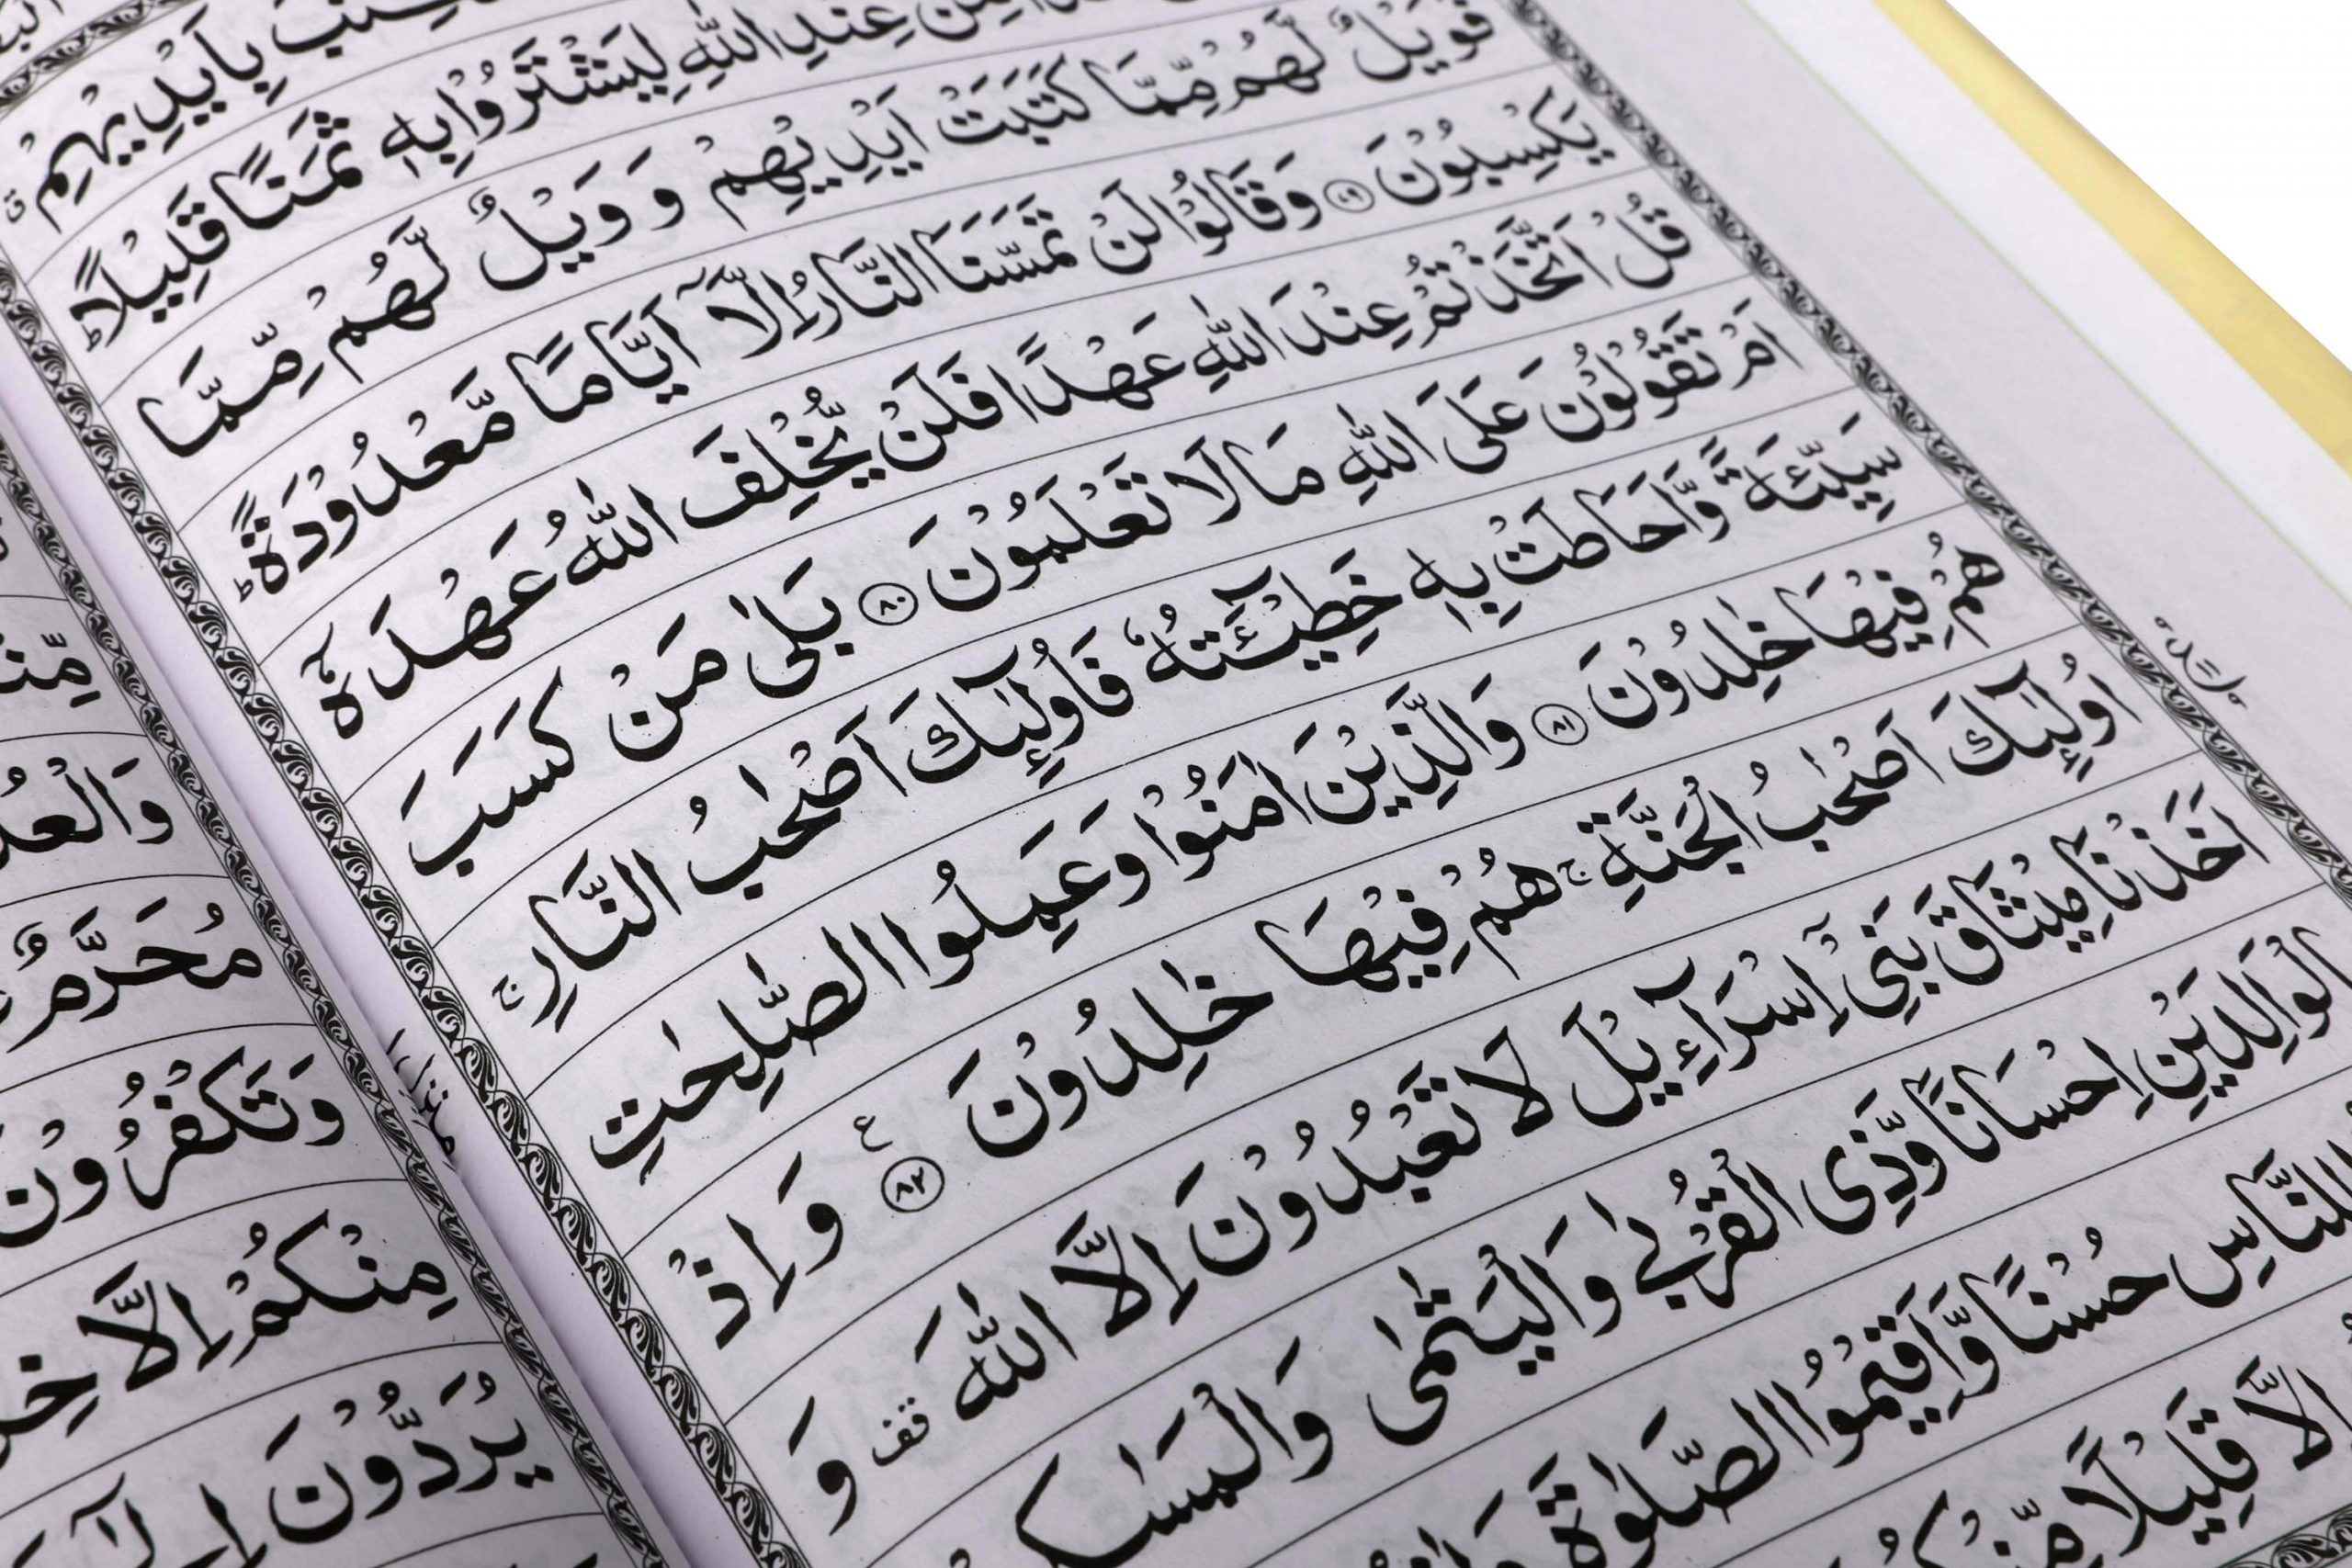 بِاَيْدِيْهِمْ ق
عِنْدِ اللّٰهِ لِيَشْتَرُوْا بِهٖ ثَمَنًا قَلِيْلًا ط
فَوَيْلٌ لَّهُمْ مِّمَّا كَتَبَتْ اَيْدِيْهِمْ وَوَيْلٌ لَّهُمْ مِّمَّا
يَكْسِبُوْنَ ﴿٧٩﴾ وَقَالُوْا لَنْ تَمَسَّنَا النَّارُ اِلَّآ اَيَّامًا مَّعْدُوْدَةً ط
قُلْ اَتَّخَذْتُمْ عِنْدَ اللّٰهِ عَهْدًا فَلَنْ يُّخْلِفَ اللّٰهُ عَهْدَهٗٓ
اَمْ تَقُوْلُوْنَ عَلَى اللّٰهِ مَا لَا تَعْلَمُوْنَ ﴿٨٠﴾ بَلٰى مَنْ كَسَبَ
سَيِّئَةً وَّاَحَاطَتْ بِهٖ خَطِيْٓئَتُهٗ فَاُولٰٓئِكَ اَصْحٰبُ النَّارِ ج
هُمْ فِيْهَا خٰلِدُوْنَ ﴿٨١﴾ وَالَّذِيْنَ اٰمَنُوْا وَعَمِلُوا الصّٰلِحٰتِ
اُولٰٓئِكَ اَصْحٰبُ الْجَنَّةِ ج هُمْ فِيْهَا خٰلِدُوْنَ ﴿٨٢﴾ ع وَاِذْ
اَخَذْنَا مِيْثَاقَ بَنِيْٓ اِسْرَآءِيْلَ لَا تَعْبُدُوْنَ اِلَّا اللّٰهَ قف وَ
الْوَالِدَيْنِ اِحْسَانًا وَّذِى الْقُرْبٰى وَالْيَتٰمٰى وَالْمَسٰكِ
لِلنَّاسِ حُسْنًا وَّاَقِيْمُوا الصَّلٰوةَ
اِلَّا قَلِيْلًا مِّنْكُمْ
وَالْعُدْ
مُحَرَّمٌ
وَتَكْفُرُوْنَ
مِنْكُمْ اِلَّا خِ
يُرَدُّوْنَ اِلٰٓى